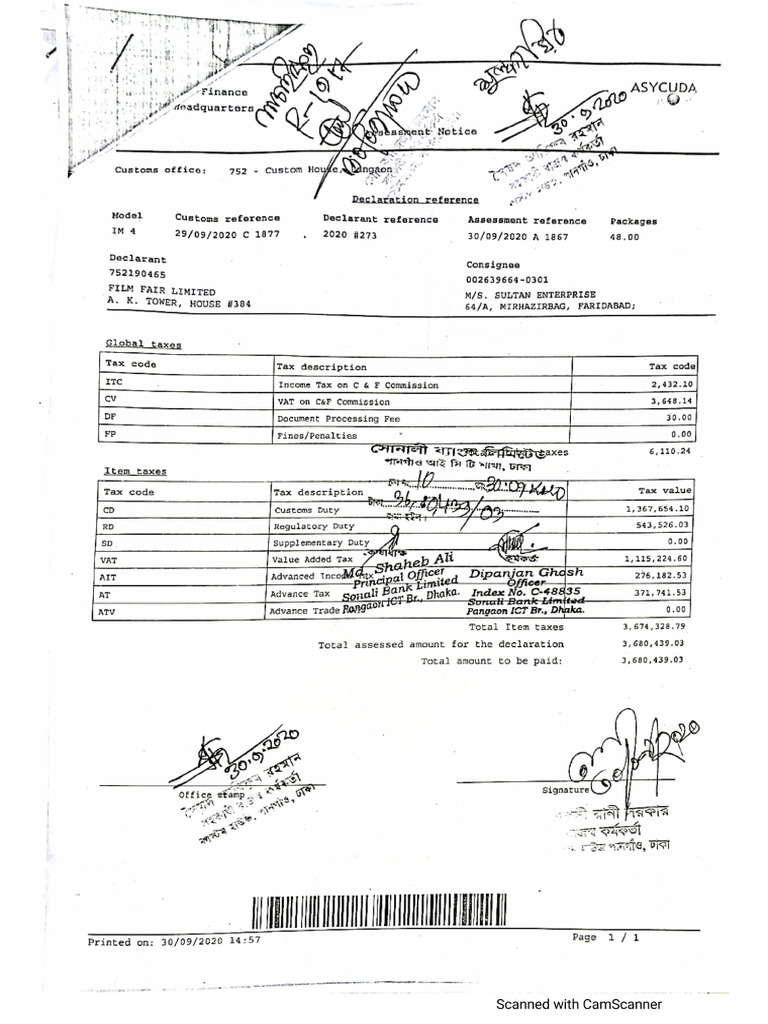 ASYCUDA
Finance
Headquarters
Assessment Notice
Customs office: 752 - Custom House, Pangaon
Declaration reference
Model Customs reference Declarant reference Assessment reference Packages
IM 4 29/09/2020 C 1877 2020 #273 30/09/2020 A 1867 48.00
Declarant
752190465
FILM FAIR LIMITED
A. K. TOWER, HOUSE #384
Consignee
002639664-0301
M/S. SULTAN ENTERPRISE
64/A, MIRHAZIRBAG, FARIDABAD;
Global taxes
Tax code Tax description Tax code
ITC Income Tax on C & F Commission 2,432.10
CV VAT on C&F Commission 3,648.14
DF Document Processing Fee 30.00
FP Fines/Penalties 0.00
taxes 6,110.24
সোনালী ব্যাংক লিমিটেড
পানগাঁও আই সি টি শাখা, ঢাকা
Item taxes
Tax code Tax description Tax value
CD Customs Duty 1,367,654.10
RD Regulatory Duty 543,526.03
SD Supplementary Duty 0.00
VAT Value Added Tax 1,115,224.60
AIT Advanced Income Tax 276,182.53
AT Advance Tax 371,741.53
ATV Advance Trade 0.00
Md. Shaheb Ali
Principal Officer
Sonali Bank Limited
Pangaon ICT Br., Dhaka.
কর্মকর্তা
Dipanjan Ghosh
Officer
Index No. C-48835
Sonali Bank Limited
Pangaon ICT Br., Dhaka.
Total Item taxes 3,674,328.79
Total assessed amount for the declaration 3,680,439.03
Total amount to be paid: 3,680,439.03
30.9.2020
Office stamp
সৈয়দ আনিছুর রহমান
সহকারী রাজস্ব কর্মকর্তা
কাস্টম হাউজ, পানগাঁও, ঢাকা
Signature
রানী সরকার
রাজস্ব কর্মকর্তা
হাউজ পানগাঁও, ঢাকা
Printed on: 30/09/2020 14:57
Page 1 / 1
Scanned with CamScanner